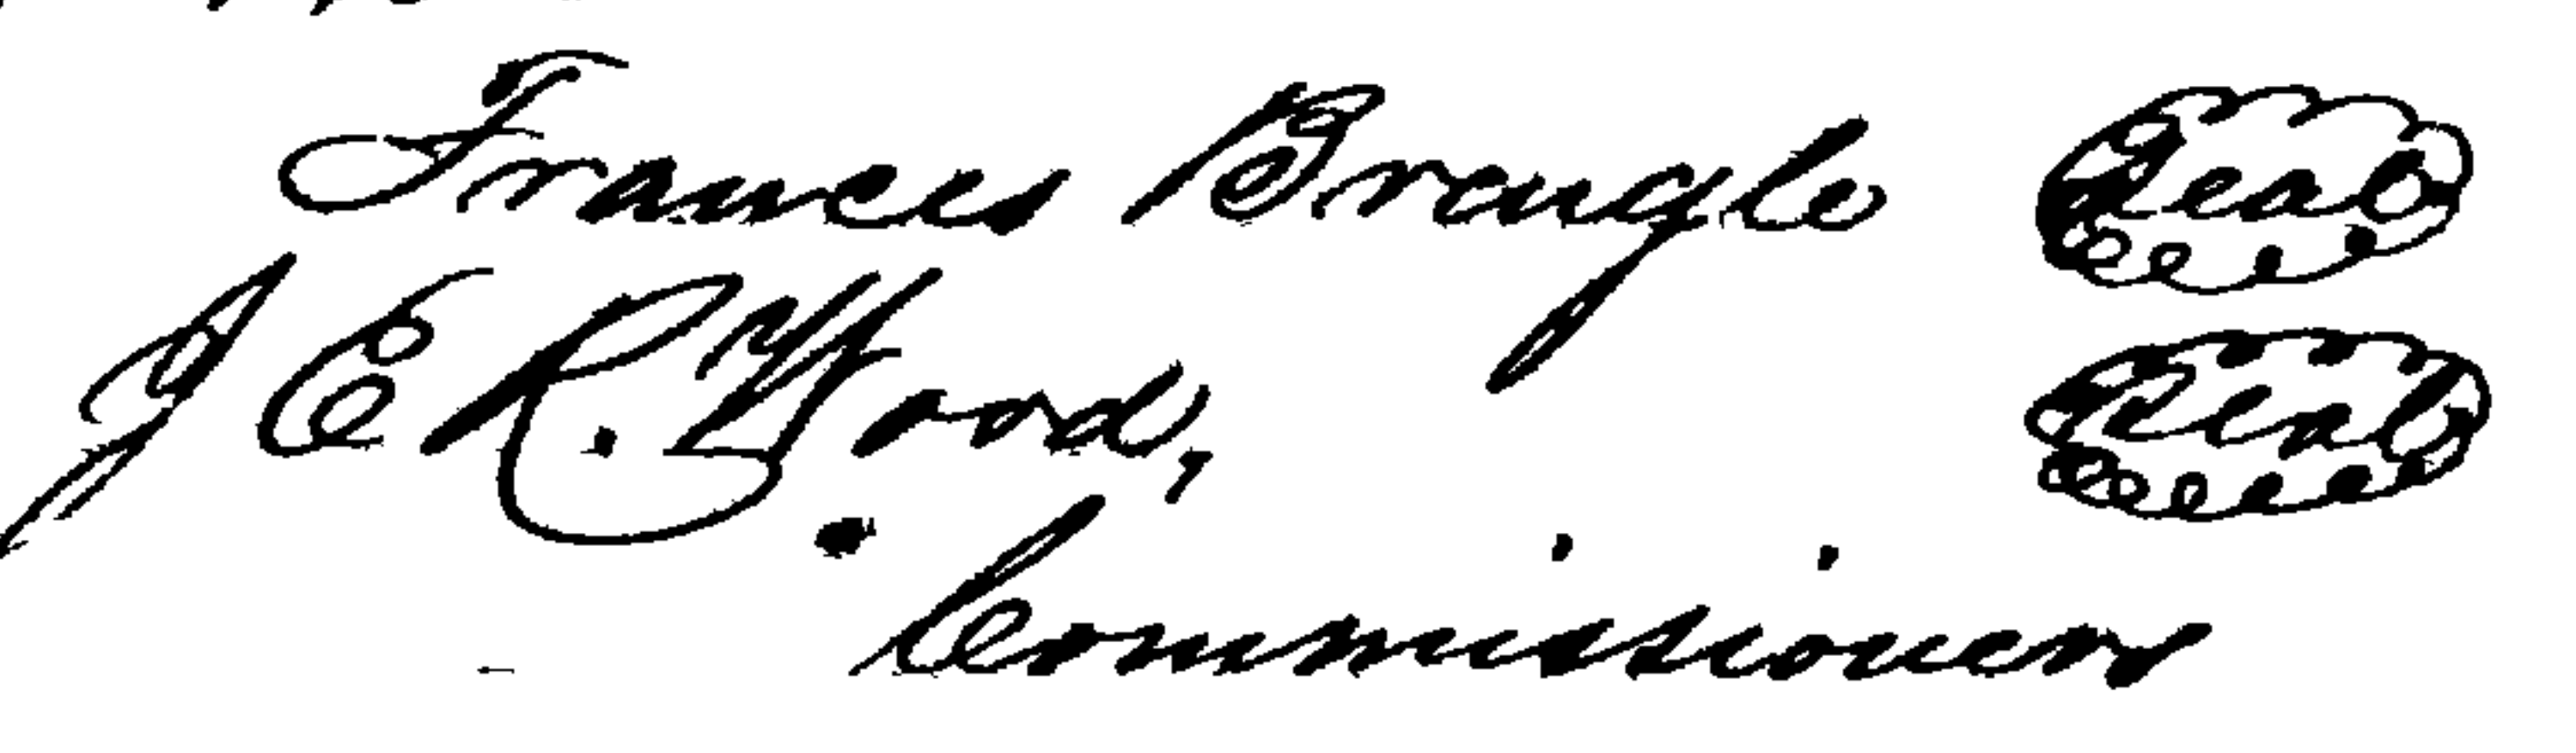 Frances Brengle Seal
J E R. Wood, Seal
Commissioners